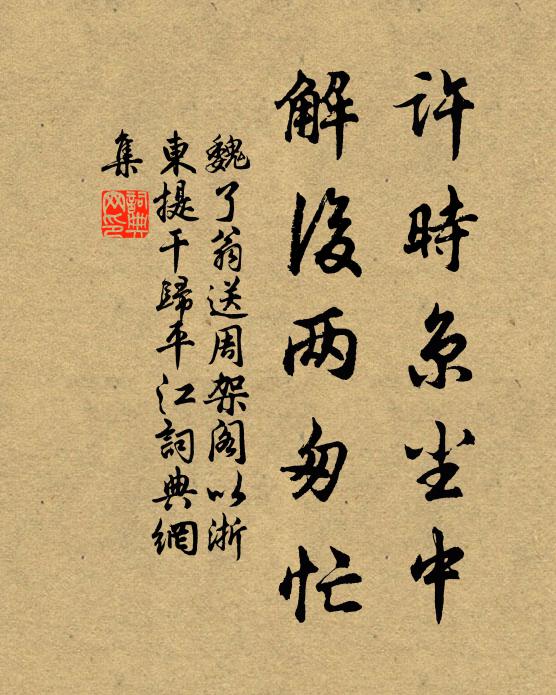 許時京尘中
解後两匆忙
魏了翁送周架阁以浙
東提干歸平江詞典網
集
詞典网印